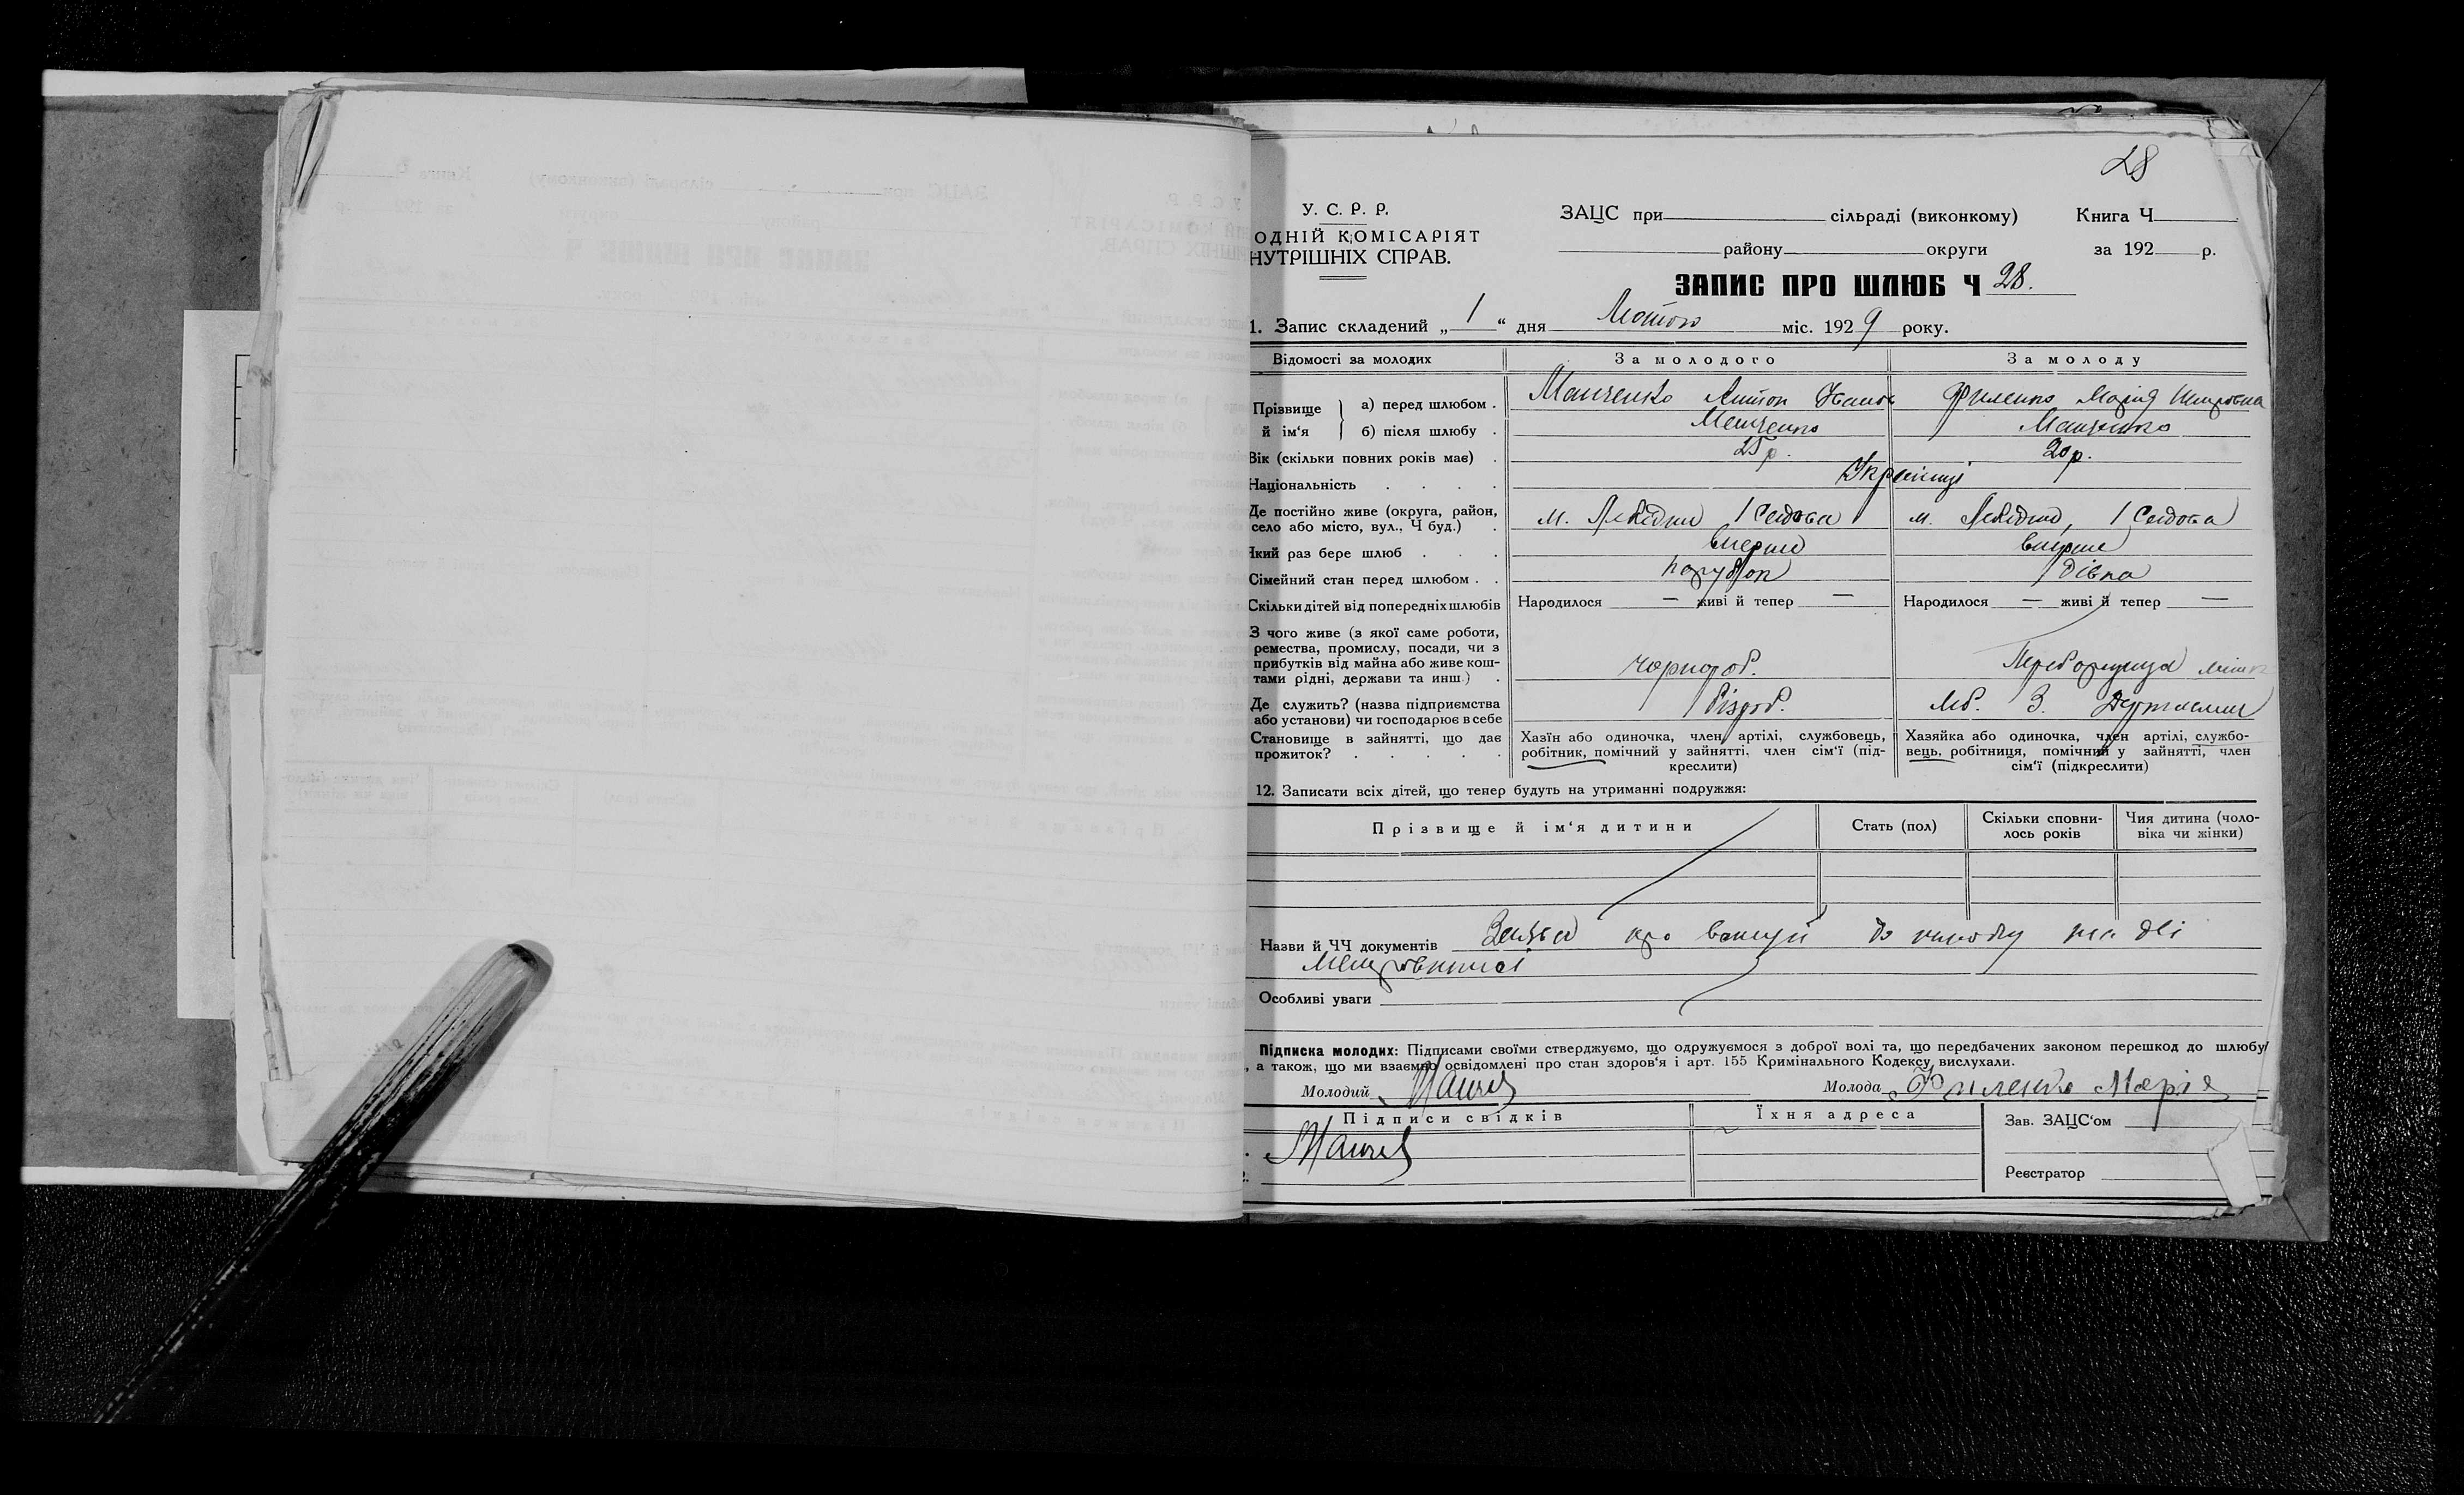 28
У. С. Р. Р.
ОДНІЙ КОМІСАРІЯТ
НУТРІШНІХ СПРАВ.
ЗАЦС при сільраді (виконкому) Книга Ч
району округи за 192 р.
ЗАПИС ПРО ШЛЮБ Ч 28.
1. Запис складений „ 1 “ дня Лютого міс. 1929 року.
Відомості за молодих За молодого За молоду
Прізвище й ім‘я
а) перед шлюбом . Манченко Антон Іванов Филенко Марія
б) після шлюбу . Манченко Манченко
Вік (скільки повних років має) . 25 р. 20 р.
Національність . . . . Українці
Де постійно живе (округа, район, село або місто, вул., Ч буд.) . м. Лебідин м. Лебідин,
Який раз бере шлюб . . . вперше вперше
Сімейний стан перед шлюбом . . парубок дівка
Скільки дітей від попередніх шлюбів Народилося — живі й тепер — Народилося — живі й тепер —
З чого живе (з якої саме роботи,
ремества, промислу, посади, чи з
прибутків від майна або живе кош-
тами рідні, держави та инш.) . чорнороб.
Де служить? (назва підприємства
або установи) чи господарює в себе
Становище в зайнятті, що дає
прожиток? . . . . .
Хазїн або одиночка, член артілі, службовець,
робітник, помічний у зайнятті, член сім‘ї (під-
креслити)
Хазяйка або одиночка, член артілі, службо-
вець, робітниця, помічний у зайнятті, член
сім‘ї (підкреслити)
12. Записати всіх дітей, що тепер будуть на утриманні подружжя:
Прізвище й ім‘я дитини Стать (пол) Скільки сповни-
лось років Чия дитина (чоло-
віка чи жінки)
Назви й ЧЧ документів про та дві
Особливі уваги
Підписка молодих: Підписами своїми стверджуємо, що одружуємося з доброї волі та, що передбачених законом перешкод до шлюбу
, а також, що ми взаємно освідомлені про стан здоров‘я і арт. 155 Кримінального Кодексу вислухали.
Молодий Молода Филенко Марія
Підписи свідків Їхня адреса Зав. ЗАЦС‘ом
Реєстратор